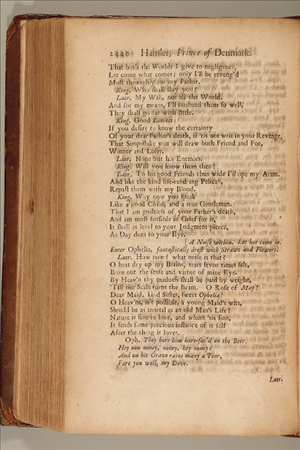 2440 Hamlet, Prince of Denmark.
That both the Worlds I give to negligence,
Let come what comes; only I'll be reveng'd
Most throughly for my Father.
King. Who shall stay you?
Laer. My Will, not all the World.
And for my means, I'll husband them so well,
They shall go far with little.
King. Good Laertes:
If you desire to know the certainty
Of your dear Father's death, if 'tis not writ in your Revenge,
That Soop-stake you will draw both Friend and Foe,
Winner and Loser.
Laer. None but his Enemies.
King. Will you know them then?
Laer. To his good Friends thus wide I'll ope my Arms.
And like the kind life-rend'ring Pelican,
Repast them with my Blood.
King. Why now you speak
Like a good Child, and a true Gentleman.
That I am guiltless of your Father's death,
And am most sensible in Grief for it,
It shall as level to your Judgment pierce,
As Day does to your Eye.
A Noise within. Let her come in.
Enter Ophelia, fantastically drest with Straws and Flowers.
Laer. How now! what noise is that?
O heat dry up my Brains, tears seven times salt,
Burn out the sense and virtue of mine Eye.
By Heav'n thy madness shall be paid by weight,
'Till our Scale turns the Beam. O Rose of May!
Dear Maid, kind Sister, sweet Ophelia!
O Heav'ns, is't possible, a young Maid's wits,
Should be as mortal as an old Man's Life?
Nature is fine in love, and where 'tis fine,
It sends some precious instance of it self
After the thing it loves.
Oph. They bore him bare-fac'd on the Beer,
Hey non nonny, nonny, hey nonny:
And on his Grave rains many a Tear,
Fare you well, my Dove.
Laer.